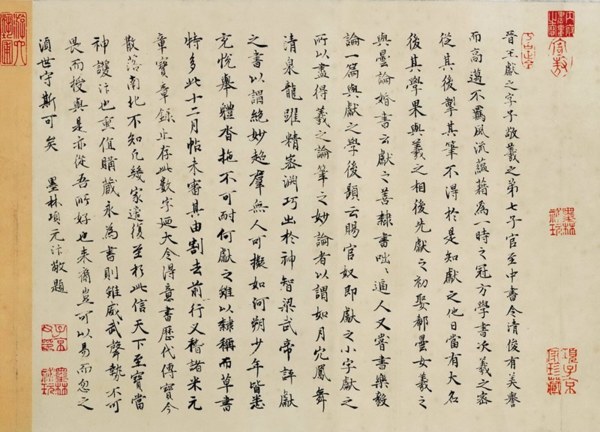 晉王獻之字子敬羲之第七子官至中書令清俊有美譽
而高邁不羈風流蘊藉為一時之冠方學書次羲之密
從其後掣其筆不得於是知獻之他日當有大名
後其學果與羲之相後先獻之初娶郗曇女羲之
與曇論婚書云獻之善隸書咄咄逼人又嘗書樂毅
論一篇與獻之學後題云賜官奴即獻之小字獻之
所以盡得羲之論筆之妙論者以謂如丹穴鳳舞
清泉龍躍精密淵巧出於神智梁武帝評獻
之書以謂絕妙超羣無人可擬如河朔少年皆悉
充悅舉體沓拖不可耐何獻之雖以隸稱而草書
特多此十二月帖未審其由割去前行又稽諸米元
章寶章錄止存此數字迺大令得意書歷代傳寶今
散落南北不知凡幾家復並於此信天下至寶當
神護持也重值購藏永為書則雖威武聲勢不可
畏而授與是亦從吾所好也來裔豈可以易而忽之
須世守斯可矣 墨林項元汴敬題
項子京家珍藏
墨林祕玩
子京父印